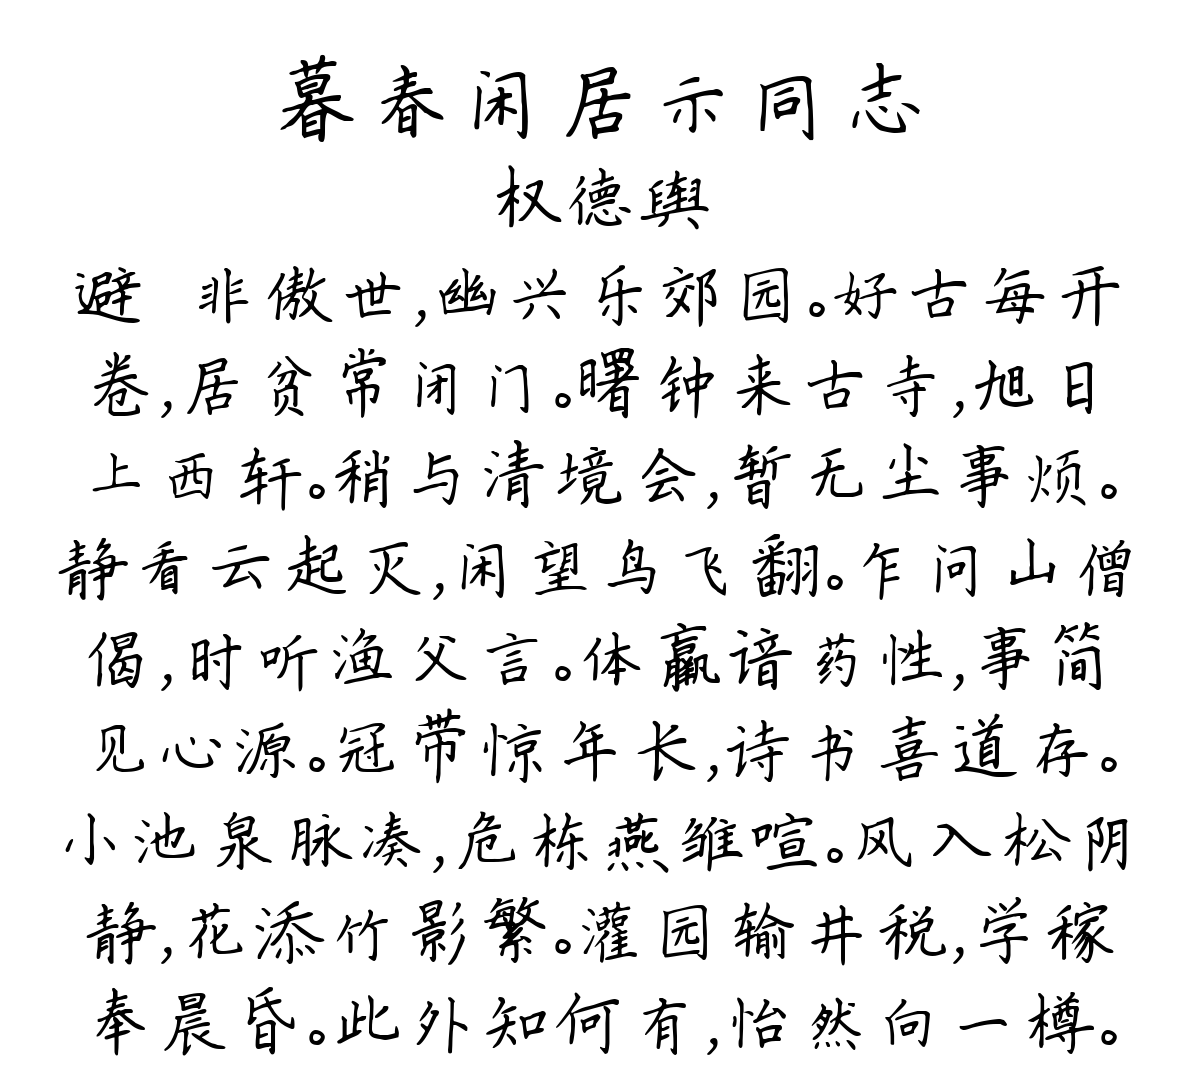 暮春闲居示同志
权德舆
避 非傲世,幽兴乐郊园。好古每开
卷,居贫常闭门。曙钟来古寺,旭日
上西轩。稍与清境会,暂无尘事烦。
静看云起灭,闲望鸟飞翻。乍问山僧
偈,时听渔父言。体羸谙药性,事简
见心源。冠带惊年长,诗书喜道存。
小池泉脉凑,危栋燕雏喧。风入松阴
静,花添竹影繁。灌园输井税,学稼
奉晨昏。此外知何有,怡然向一樽。